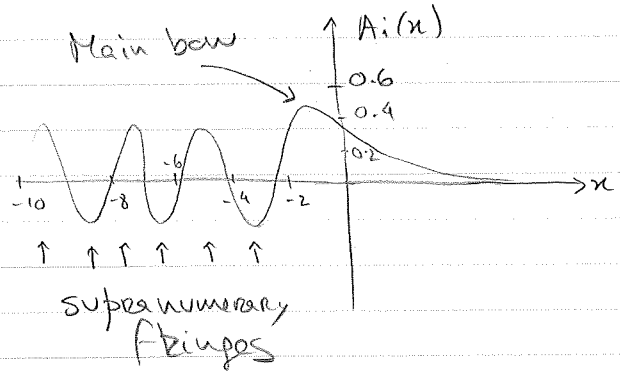 Ai(x)
Main bow
0.6
0.4
0.2
-10 -8 -6 -4 -2 x
supranumerary
fringes